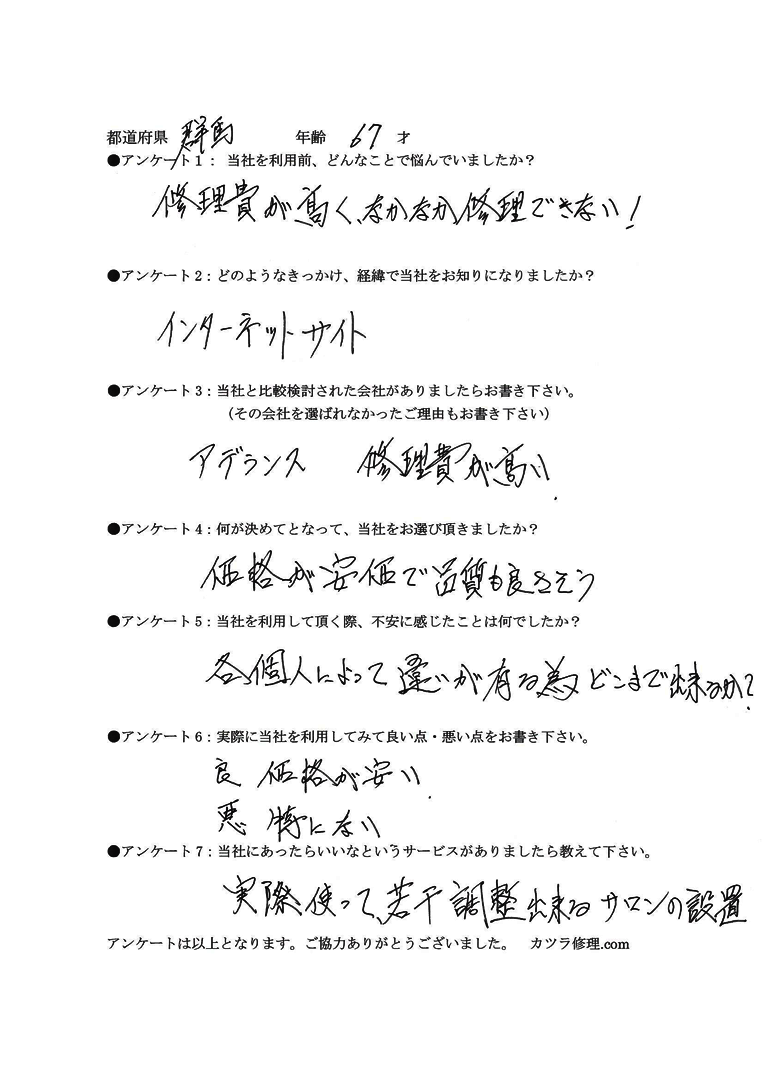 都道府県 群馬 年齢 67 才
●アンケート1： 当社を利用前、どんなことで悩んでいましたか？
修理費が高く、なかなか修理できない！
●アンケート2：どのようなきっかけ、経緯で当社をお知りになりましたか？
インターネットサイト
●アンケート3：当社と比較検討された会社がありましたらお書き下さい。
（その会社を選ばれなかったご理由もお書き下さい）
アデランス 修理費が高い．
●アンケート4：何が決めてとなって、当社をお選び頂きましたか？
価格が安価で品質も良さそう
●アンケート5：当社を利用して頂く際、不安に感じたことは何でしたか？
各個人によって違いが有る為どこまで出来るか？
●アンケート6：実際に当社を利用してみて良い点・悪い点をお書き下さい。
良 価格が安い．
悪 特にない．
●アンケート7：当社にあったらいいなというサービスがありましたら教えて下さい。
実際使って、若干調整出来るサロンの設置
アンケートは以上となります。ご協力ありがとうございました。 カツラ修理.com